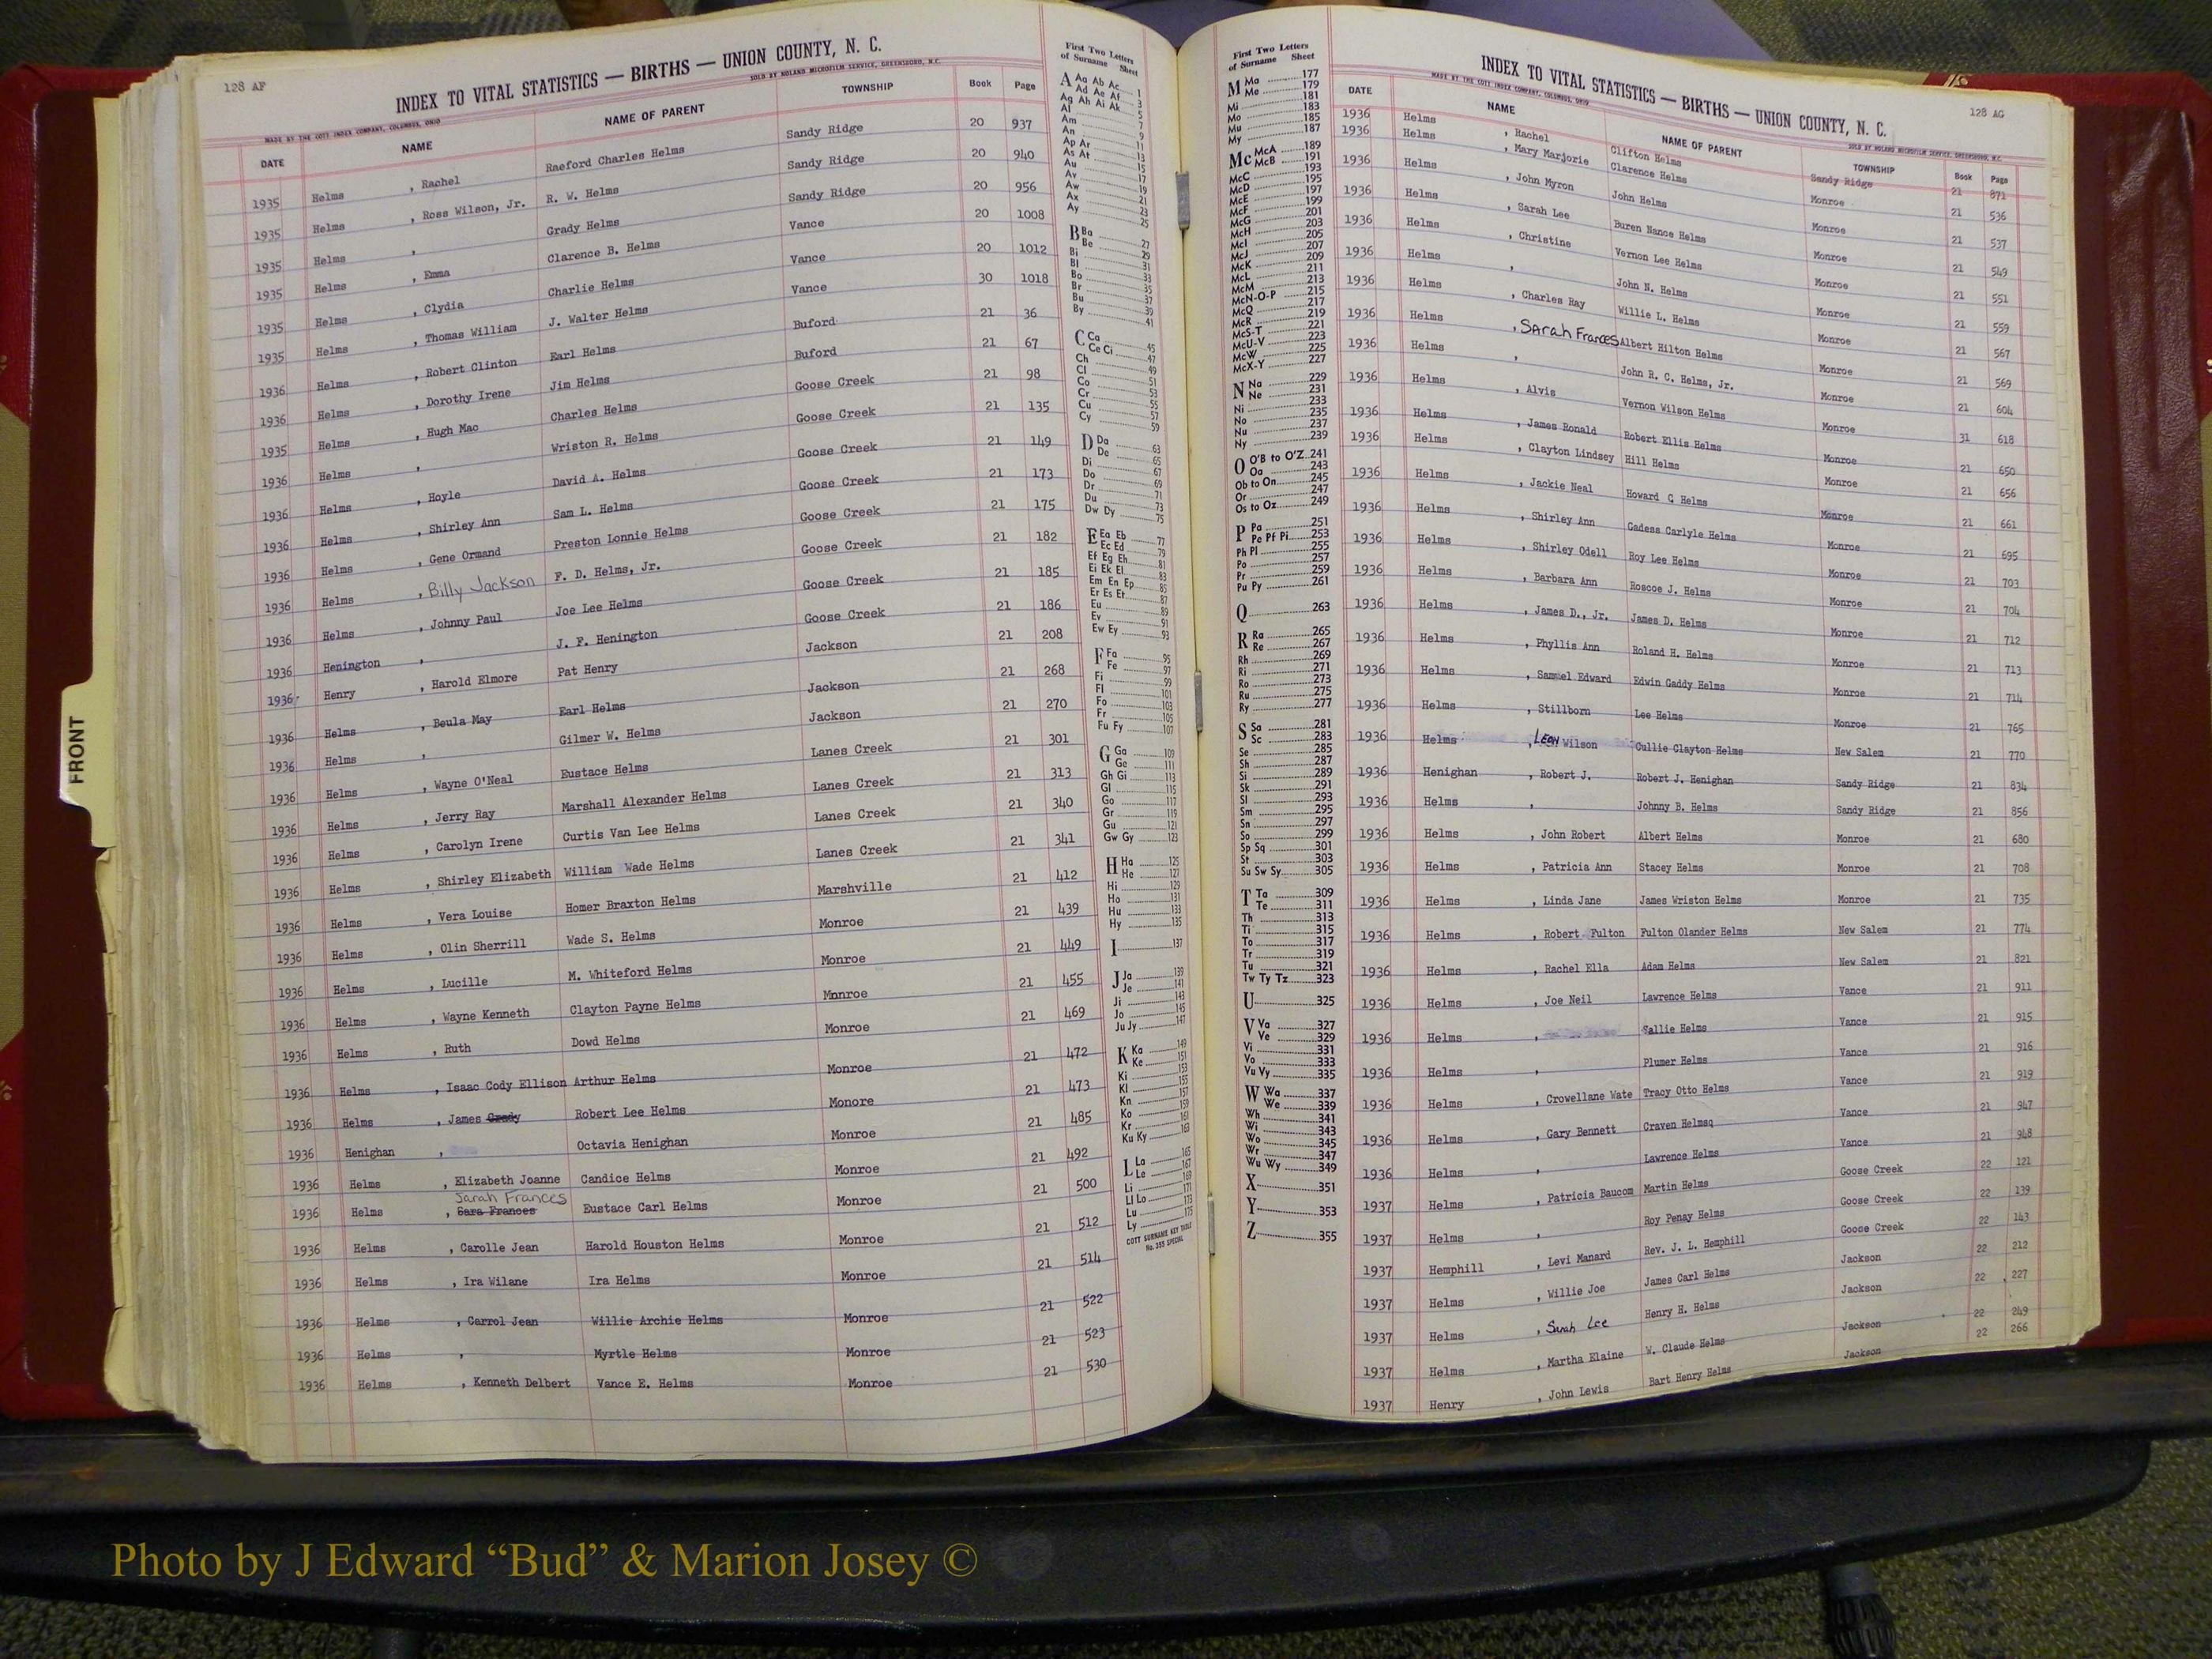 128 AF
INDEX TO VITAL STATISTICS — BIRTHS — UNION COUNTY, N. C.
MADE BY THE COTT INDEX COMPANY, COLUMBUS, OHIO SOLD BY NOLAND MICROFILM SERVICE, GREENSBORO, N.C.
DATE NAME NAME OF PARENT TOWNSHIP Book Page
1935 Helms , Rachel Raeford Charles Helms Sandy Ridge 20 937
1935 Helms , Ross Wilson, Jr. R. W. Helms Sandy Ridge 20 940
1935 Helms , Grady Helms Sandy Ridge 20 956
1935 Helms , Emma Clarence B. Helms Vance 20 1008
1935 Helms , Clydia Charlie Helms Vance 20 1012
1935 Helms , Thomas William J. Walter Helms Vance 30 1018
1936 Helms , Robert Clinton Earl Helms Buford 21 36
1936 Helms , Dorothy Irene Jim Helms Buford 21 67
1935 Helms , Hugh Mac Charles Helms Goose Creek 21 98
1936 Helms , Wriston R. Helms Goose Creek 21 135
1936 Helms , Hoyle David A. Helms Goose Creek 21 149
1936 Helms , Shirley Ann Sam L. Helms Goose Creek 21 173
1936 Helms , Gene Ormand Preston Lonnie Helms Goose Creek 21 175
1936 Helms , Billy Jackson F. D. Helms, Jr. Goose Creek 21 182
1936 Helms , Johnny Paul Joe Lee Helms Goose Creek 21 185
1936 Henington , J. F. Henington Goose Creek 21 186
1936 Henry , Harold Elmore Pat Henry Jackson 21 208
1936 Helms , Beula May Earl Helms Jackson 21 268
1936 Helms , Gilmer W. Helms Jackson 21 270
1936 Helms , Wayne O'Neal Eustace Helms Lanes Creek 21 301
1936 Helms , Jerry Ray Marshall Alexander Helms Lanes Creek 21 313
1936 Helms , Carolyn Irene Curtis Van Lee Helms Lanes Creek 21 340
1936 Helms , Shirley Elizabeth William Wade Helms Lanes Creek 21 341
1936 Helms , Vera Louise Homer Braxton Helms Marshville 21 412
1936 Helms , Olin Sherrill Wade S. Helms Monroe 21 439
1936 Helms , Lucille M. Whiteford Helms Monroe 21 449
1936 Helms , Wayne Kenneth Clayton Payne Helms Mnnroe 21 455
1936 Helms , Ruth Dowd Helms Monroe 21 469
1936 Helms , Isaac Cody Ellison Arthur Helms Monroe 21 472
1936 Helms , James Grady Robert Lee Helms Monore 21 473
1936 Henighan , Octavia Henighan Monroe 21 485
1936 Helms , Elizabeth Joanne Candice Helms Monroe 21 492
Sarah Frances
1936 Helms , Sara Frances Eustace Carl Helms Monroe 21 500
1936 Helms , Carolle Jean Harold Houston Helms Monroe 21 512
1936 Helms , Ira Wilane Ira Helms Monroe 21 514
1936 Helms , Carrol Jean Willie Archie Helms Monroe 21 522
1936 Helms , Myrtle Helms Monroe 21 523
1936 Helms , Kenneth Delbert Vance E. Helms Monroe 21 530
First Two Letters
of Surname Sheet
A Aa Ab Ac 1
Ad Ae Af 3
Ag Ah Ai Ak 5
Al 7
Am 9
An 11
Ap Ar 13
As At 15
Au 17
Av 19
Aw 21
Ax 23
Ay 25
B Ba 27
Be 29
Bi 31
Bl 33
Bo 35
Br 37
Bu 39
By 41
C Ca 45
Ce Ci 47
Ch 49
Cl 51
Co 53
Cr 55
Cu 57
Cy 59
D Da 63
De 65
Di 67
Do 69
Dr 71
Du 73
Dw Dy 75
E Ea Eb 77
Ec Ed 79
Ef Eg Eh 81
Ei Ek El 83
Em En Ep 85
Er Es Et 87
Eu 89
Ev 91
Ew Ey 93
F Fa 95
Fe 97
Fi 99
Fl 101
Fo 103
Fr 105
Fu Fy 107
G Ga 109
Ge 111
Gh Gi 113
Gl 115
Go 117
Gr 119
Gu 121
Gw Gy 123
H Ha 125
He 127
Hi 129
Ho 131
Hu 133
Hy 135
I 137
J Ja 139
Je 141
Ji 143
Jo 145
Ju Jy 147
K Ka 149
Ke 151
Ki 153
Kl 155
Kn 157
Ko 159
Kr 161
Ku Ky 163
L La 165
Le 167
Li 169
Ll Lo 171
Lu 173
Ly 175
COTT SURNAME KEY TABLE
No. 355 SPECIAL
First Two Letters
of Surname Sheet
M Ma 177
Me 179
Mi 181
Mo 183
Mu 185
My 187
Mc McA 189
McB 191
McC 193
McD 195
McE 197
McF 199
McG 201
McH 203
McI 205
McJ 207
McK 209
McL 211
McM 213
McN-O-P 215
McQ 217
McR 219
McS-T 221
McU-V 223
McW 225
McX-Y 227
N Na 229
Ne 231
Ni 233
No 235
Nu 237
Ny 239
O O'B to O'Z 241
Oa 243
Ob to On 245
Or 247
Os to Oz 249
P Pa 251
Pe Pf Pi 253
Ph Pl 255
Po 257
Pr 259
Pu Py 261
Q 263
R Ra 265
Re 267
Rh 269
Ri 271
Ro 273
Ru 275
Ry 277
S Sa 281
Sc 283
Se 285
Sh 287
Si 289
Sk 291
Sl 293
Sm 295
Sn 297
So 299
Sp Sq 301
St 303
Su Sw Sy 305
T Ta 309
Te 311
Th 313
Ti 315
To 317
Tr 319
Tu 321
Tw Ty Tz 323
U 325
V Va 327
Ve 329
Vi 331
Vo 333
Vu Vy 335
W Wa 337
We 339
Wh 341
Wi 343
Wo 345
Wr 347
Wu Wy 349
X 351
Y 353
Z 355
128 AG
INDEX TO VITAL STATISTICS — BIRTHS — UNION COUNTY, N. C.
MADE BY THE COTT INDEX COMPANY, COLUMBUS, OHIO SOLD BY NOLAND MICROFILM SERVICE, GREENSBORO, N.C.
DATE NAME NAME OF PARENT TOWNSHIP Book Page
1936 Helms , Rachel Clifton Helms Sandy Ridge 21 871
1936 Helms , Mary Marjorie Clarence Helms Monroe 21 536
1936 Helms , John Myron John Helms Monroe 21 537
1936 Helms , Sarah Lee Buren Nance Helms Monroe 21 549
1936 Helms , Christine Vernon Lee Helms Monroe 21 551
1936 Helms , John N. Helms Monroe 21 559
1936 Helms , Charles Ray Willie L. Helms Monroe 21 567
1936 Helms , Sarah Frances Albert Hilton Helms Monroe 21 569
1936 Helms , John R. C. Helms, Jr. Monroe 21 604
1936 Helms , Alvis Vernon Wilson Helms Monroe 31 618
1936 Helms , James Ronald Robert Ellis Helms Monroe 21 650
1936 Helms , Clayton Lindsey Hill Helms Monroe 21 656
1936 Helms , Jackie Neal Howard C Helms Monroe 21 661
1936 Helms , Shirley Ann Cadess Carlyle Helms Monroe 21 695
1936 Helms , Shirley Odell Roy Lee Helms Monroe 21 703
1936 Helms , Barbara Ann Roscoe J. Helms Monroe 21 704
1936 Helms , James D., Jr. James D. Helms Monroe 21 712
1936 Helms , Phyllis Ann Roland H. Helms Monroe 21 713
1936 Helms , Samuel Edward Edwin Gaddy Helms Monroe 21 714
1936 Helms , Stillborn Lee Helms Monroe 21 765
1936 Helms , Leon Wilson Cullie Clayton Helms New Salem 21 770
1936 Henighan , Robert J. Robert J. Henighan Sandy Ridge 21 834
1936 Helms , Johnny B. Helms Sandy Ridge 21 856
1936 Helms , John Robert Albert Helms Monroe 21 680
1936 Helms , Patricia Ann Stacey Helms Monroe 21 708
1936 Helms , Linda Jane James Wriston Helms Monroe 21 735
1936 Helms , Robert Fulton Fulton Olander Helms New Salem 21 774
1936 Helms , Rachel Ella Adam Helms New Salem 21 821
1936 Helms , Joe Neil Lawrence Helms Vance 21 911
1936 Helms , Sallie Helms Vance 21 915
1936 Helms , Plumer Helms Vance 21 916
1936 Helms , Crowellane Wate Tracy Otto Helms Vance 21 919
1936 Helms , Gary Bennett Craven Helmsq Vance 21 947
1936 Helms , Lawrence Helms Vance 21 948
1937 Helms , Patricia Baucom Martin Helms Goose Creek 22 121
1937 Helms , Roy Penay Helms Goose Creek 22 139
1937 Hemphill , Levi Manard Rev. J. L. Hemphill Goose Creek 22 143
1937 Helms , Willie Joe James Carl Helms Jackson 22 212
1937 Helms , Sarah Lee Henry H. Helms Jackson 22 227
1937 Helms , Martha Elaine W. Claude Helms Jackson 22 249
1937 Henry , John Lewis Bart Henry Helms Jackson 22 266
FRONT
Photo by J Edward “Bud” & Marion Josey ©